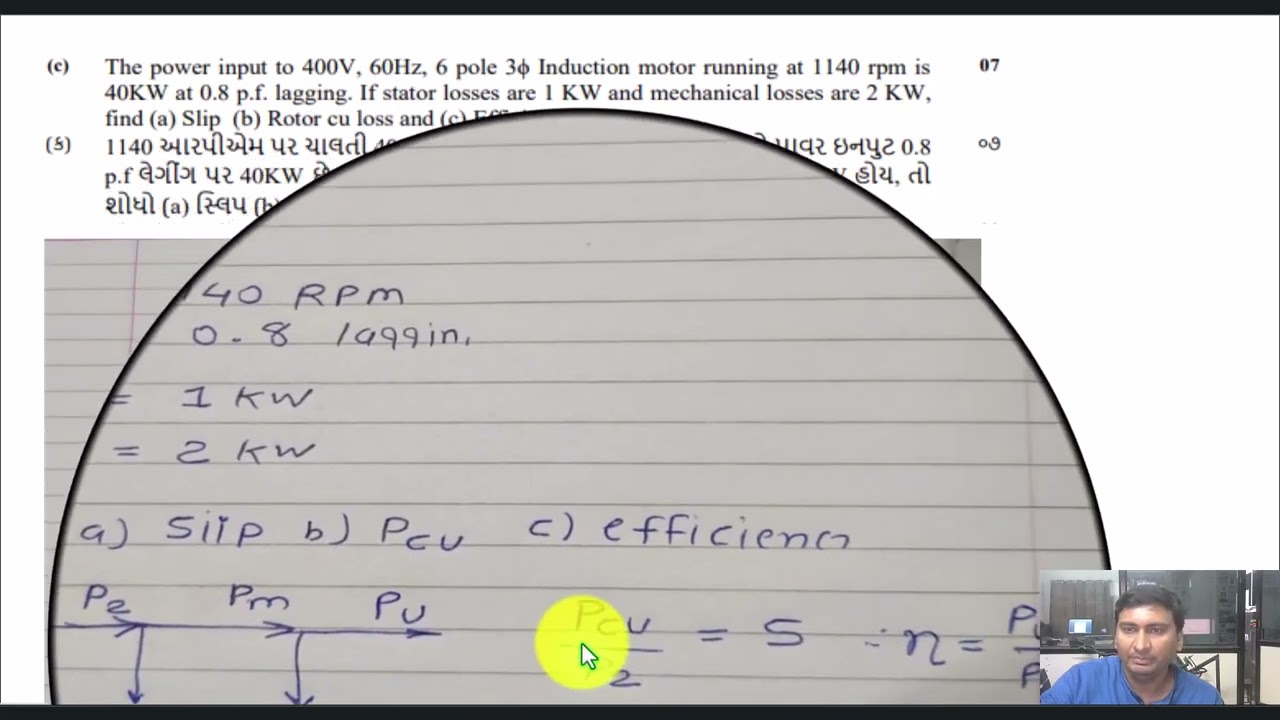 (c) The power input to 400V, 60Hz, 6 pole 3ϕ Induction motor running at 1140 rpm is 07
40KW at 0.8 p.f. lagging. If stator losses are 1 KW and mechanical losses are 2 KW,
find (a) Slip (b) Rotor cu loss and (c)
(ક) 1140 આરપીએમ પર ચાલતી પાવર ઇનપુટ 0.8 ૦૭
p.f લેગીંગ પર 40KW હોય, તો
શોધો (a) સ્લિપ (b)
40 RPM
0.8 laggin.
= 1 KW
= 2 KW
a) Slip b) PCU c) efficiency
P2 Pm PU PCU / P2 = S ∴ η =